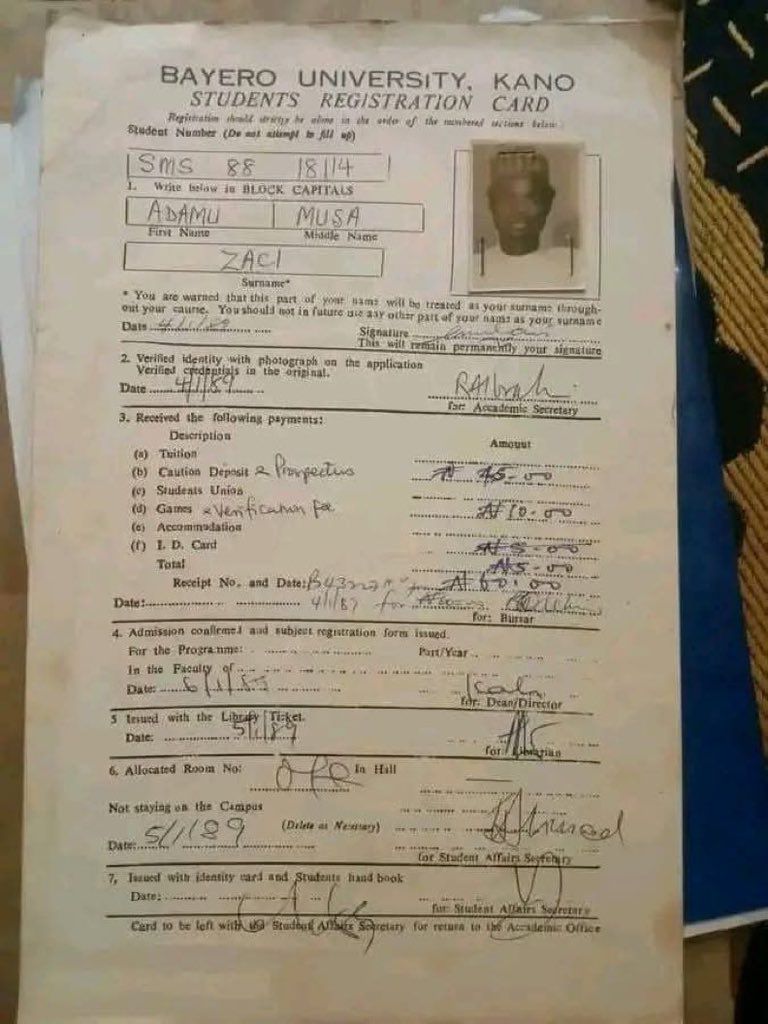 BAYERO UNIVERSITY, KANO
STUDENTS REGISTRATION CARD
Registration should strictly be done in the order of the numbered sections below.
Student Number (Do not attempt to fill up)
SMS 88 18114
1. Write below in BLOCK CAPITALS
ADAMU MUSA
First Name Middle Name
ZACI
Surname*
* You are warned that this part of your name will be treated as your surname through-
out your course. You should not in future use any other part of your name as your surname
Date 4/1/89 Signature
This will remain permanently your signature
2. Verified identity with photograph on the application
Verified credentials in the original.
Date 4/1/89
for: Academic Secretary
3. Received the following payments:
Description Amount
(a) Tuition
(b) Caution Deposit & Prospectus ₦ 45-00
(c) Students Union
(d) Games & Verification fee ₦10-00
(e) Accommodation
(f) I. D. Card ₦5-00
Total ₦5-00
Receipt No. and Date: ₦60.00
Date: 4/1/89 for
for: Bursar
4. Admission confirmed and subject registration form issued.
For the Programme: Part/Year
In the Faculty of
Date: 6/1/89
for: Dean/Director
5 Issued with the Library Ticket.
Date: 5/1/89
for Librarian
6. Allocated Room No: In Hall
Not staying on the Campus
(Delete as Necessary)
Date: 5/1/89
for Student Affairs Secretary
7, Issued with identity card and Students handbook
Date:
for: Student Affairs Secretary
Card to be left with the Student Affairs Secretary for return to the Accademic Office